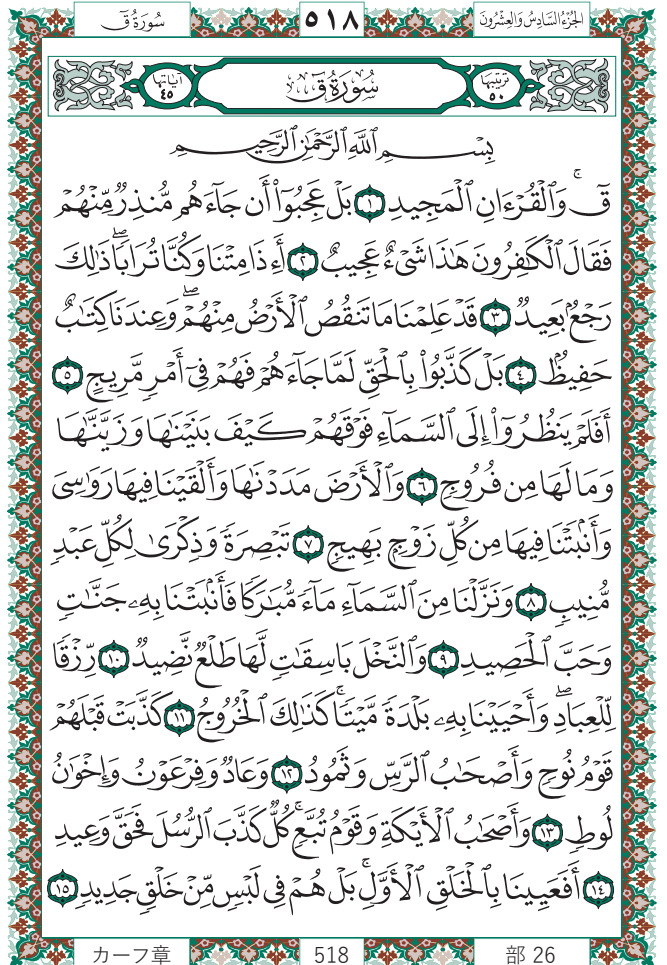 سُورَةُ قٓ ٥١٨ الجُزْءُ السَّادِسُ وَالعِشْرُونَ
آيَاتُهَا ٤٥ سُورَةُ قٓ تَرْتِيبُهَا ٥٠
بِسۡمِ ٱللَّهِ ٱلرَّحۡمَٰنِ ٱلرَّحِيمِ
قٓۚ وَٱلۡقُرۡءَانِ ٱلۡمَجِيدِ ١ بَلۡ عَجِبُوٓاْ أَن جَآءَهُم مُّنذِرٞ مِّنۡهُمۡ
فَقَالَ ٱلۡكَٰفِرُونَ هَٰذَا شَيۡءٌ عَجِيبٌ ٢ أَءِذَا مِتۡنَا وَكُنَّا تُرَابٗاۖ ذَٰلِكَ
رَجۡعُۢ بَعِيدٞ ٣ قَدۡ عَلِمۡنَا مَا تَنقُصُ ٱلۡأَرۡضُ مِنۡهُمۡۖ وَعِندَنَا كِتَٰبٌ
حَفِيظُۢ ٤ بَلۡ كَذَّبُواْ بِٱلۡحَقِّ لَمَّا جَآءَهُمۡ فَهُمۡ فِيٓ أَمۡرٖ مَّرِيجٍ ٥
أَفَلَمۡ يَنظُرُوٓاْ إِلَى ٱلسَّمَآءِ فَوۡقَهُمۡ كَيۡفَ بَنَيۡنَٰهَا وَزَيَّنَّٰهَا
وَمَا لَهَا مِن فُرُوجٖ ٦ وَٱلۡأَرۡضَ مَدَدۡنَٰهَا وَأَلۡقَيۡنَا فِيهَا رَوَٰسِيَ
وَأَنۢبَتۡنَا فِيهَا مِن كُلِّ زَوۡجِۭ بَهِيجٖ ٧ تَبۡصِرَةٗ وَذِكۡرَىٰ لِكُلِّ عَبۡدٖ
مُّنِيبٖ ٨ وَنَزَّلۡنَا مِنَ ٱلسَّمَآءِ مَآءٗ مُّبَٰرَكٗا فَأَنۢبَتۡنَا بِهِۦ جَنَّٰتٖ
وَحَبَّ ٱلۡحَصِيدِ ٩ وَٱلنَّخۡلَ بَاسِقَٰتٖ لَّهَا طَلۡعٞ نَّضِيدٞ ١٠ رِّزۡقٗا
لِّلۡعِبَادِۖ وَأَحۡيَيۡنَا بِهِۦ بَلۡدَةٗ مَّيۡتٗاۚ كَذَٰلِكَ ٱلۡخُرُوجُ ١١ كَذَّبَتۡ قَبۡلَهُمۡ
قَوۡمُ نُوحٖ وَأَصۡحَٰبُ ٱلرَّسِّ وَثَمُودُ ١٢ وَعَادٞ وَفِرۡعَوۡنُ وَإِخۡوَٰنُ
لُوطٖ ١٣ وَأَصۡحَٰبُ ٱلۡأَيۡكَةِ وَقَوۡمُ تُبَّعٖۚ كُلّٞ كَذَّبَ ٱلرُّسُلَ فَحَقَّ وَعِيدِ
١٤ أَفَعَيِينَا بِٱلۡخَلۡقِ ٱلۡأَوَّلِۚ بَلۡ هُمۡ فِي لَبۡسٖ مِّنۡ خَلۡقٖ جَدِيدٖ ١٥
カーフ章 518 部 26